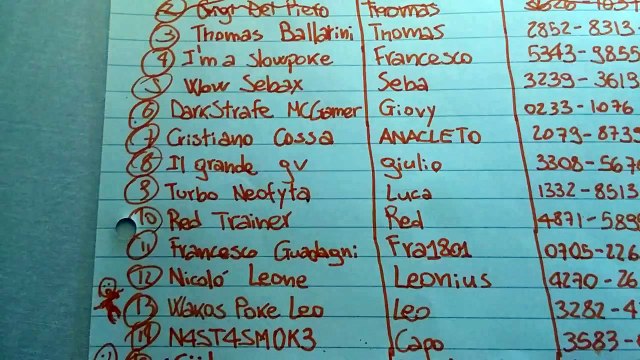 2 Thomas
3 Thomas Ballarini Thomas 2852-8313
4 I'm a slowpoke Francesco 5343-9855
5 Wow Sebax Seba 3239-3619
6 DarkStrafe McGamer Giovy 0233-1076
7 Cristiano Cossa ANACLETO 2079-8739
8 Il grande gv giulio 3308-567
9 Turbo Neofyta Luca 1332-8513
10 Red Trainer Red 4871-589
11 Francesco Guadagni Fra1801 0705-226
12 Nicoló Leone Leonius 4270-26
13 Wakos Poke Leo Leo 3282-4
14 N4ST4SM0K3 Capo 3583-